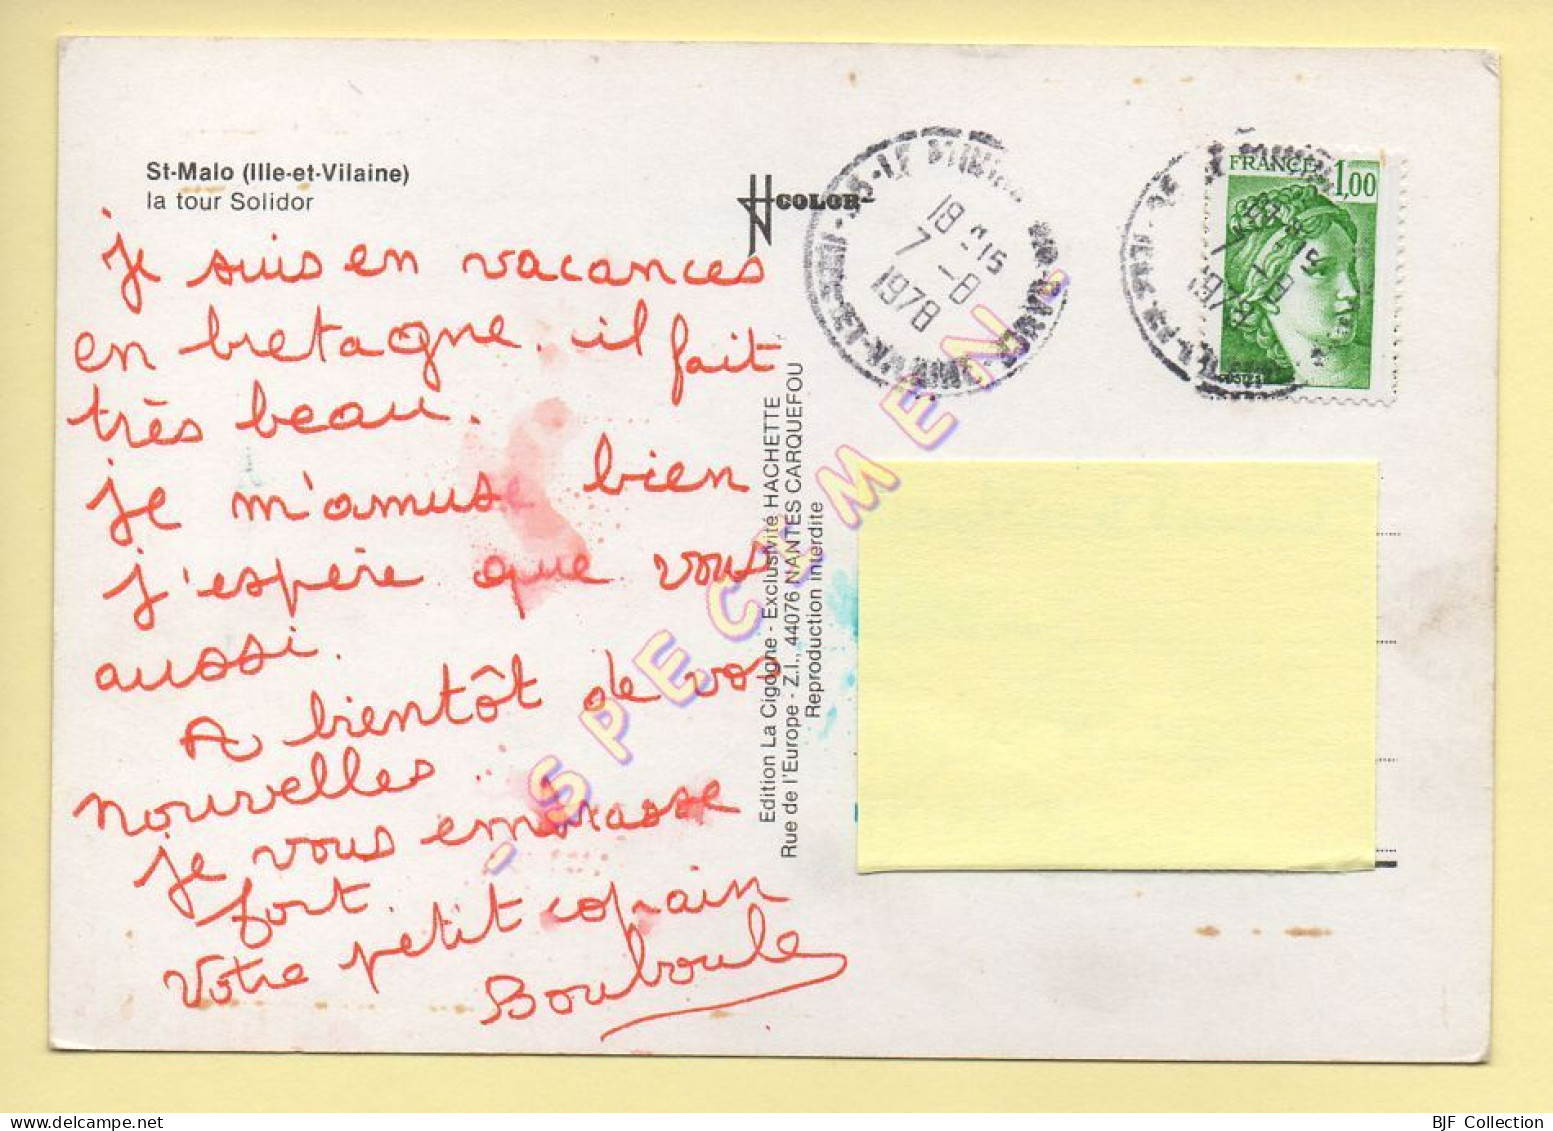 St-Malo (Ille-et-Vilaine)
la tour Solidor
COLOR
je suis en vacances
en bretagne. il fait
très beau.
je m'amuse bien
j'espère que vous
aussi.
A bientôt de vos
nouvelles.
je vous embrasse
fort.
Votre petit copain
Bouboule
Edition La Cigogne - Exclusivité HACHETTE
Rue de l'Europe - Z.I., 44076 NANTES CARQUEFOU
Reproduction Interdite
18 -15
7 -8
1978
FRANCE 1,00
- SPECIMEN -
BJF Collection